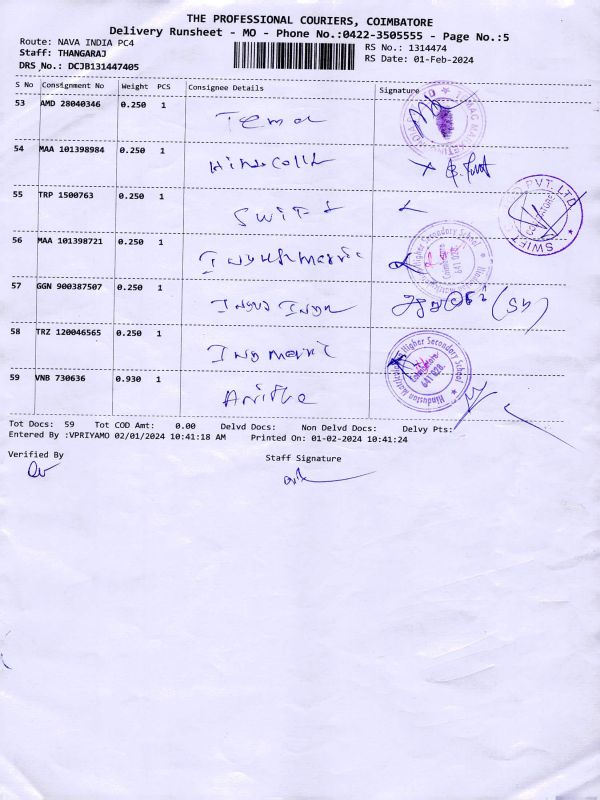 THE PROFESSIONAL COURIERS, COIMBATORE
Delivery Runsheet - MO - Phone No.:0422-3505555 - Page No.:5
Route: NAVA INDIA PC4
RS No.: 1314474
Staff: THANGARAJ
RS Date: 01-Feb-2024
DRS No.: DCJB131447405
S No Consignment No Weight PCS Consignee Details Signature
53 AMD 28040346 0.250 1
54 MAA 101398984 0.250 1
55 TRP 1500763 0.250 1 Swift
SWIFT PVT.LTD
56 MAA 101398721 0.250 1
Higher Secondary School
Coimbatore
641 028.
57 GGN 900387507 0.250 1
58 TRZ 120046565 0.250 1
Hindustan Matriculation Higher Secondary School
Coimbatore
641 028.
59 VNB 730636 0.930 1 Anitha
Tot Docs: 59 Tot COD Amt: 0.00 Delvd Docs: Non Delvd Docs: Delvy Pts:
Entered By :VPRIYAMO 02/01/2024 10:41:18 AM Printed On: 01-02-2024 10:41:24
Verified By
Staff Signature